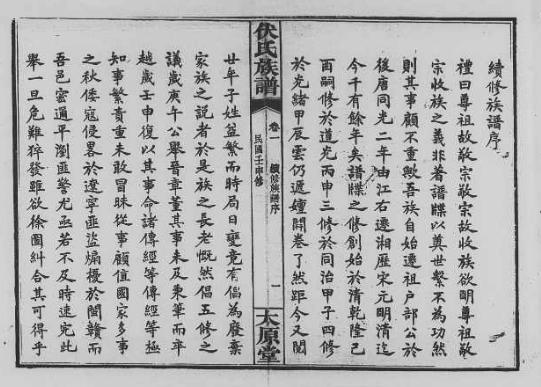 續修族譜序
禮曰尊祖故敬宗敬宗故收族欲明尊祖敬
宗收族之義非著譜牒以奠世繫不為功然
則其事顧不重歟吾族自始遷祖戶部公於
後唐同光二年由江右遷湘歷宋元明清迄
今千有餘年矣譜牒之修創始於清乾隆己
酉嗣修於道光丙申三修於同治甲子四修
於光緒甲辰雲仍遞嬗開卷了然距今又閱
伏氏族譜
卷一 續修族譜序
民國壬申修
一
太原堂
廿年子姓益繁而時局日變竟有倡為廢棄
家族之說者於是族之長老慨然倡五修之
議歲庚午公舉晉章董其事未及秉筆而卒
越歲壬申復以其事命諸傳經等傳經等極
知事繁責重未敢冒昧從事顧值國家多事
之秋倭寇侵畧於遼寧匪盜煽擾於閩贛而
吾邑密邇平瀏匪警尤亟若不及時速完此
舉一旦危難猝發雖欲徐圖糾合其可得乎